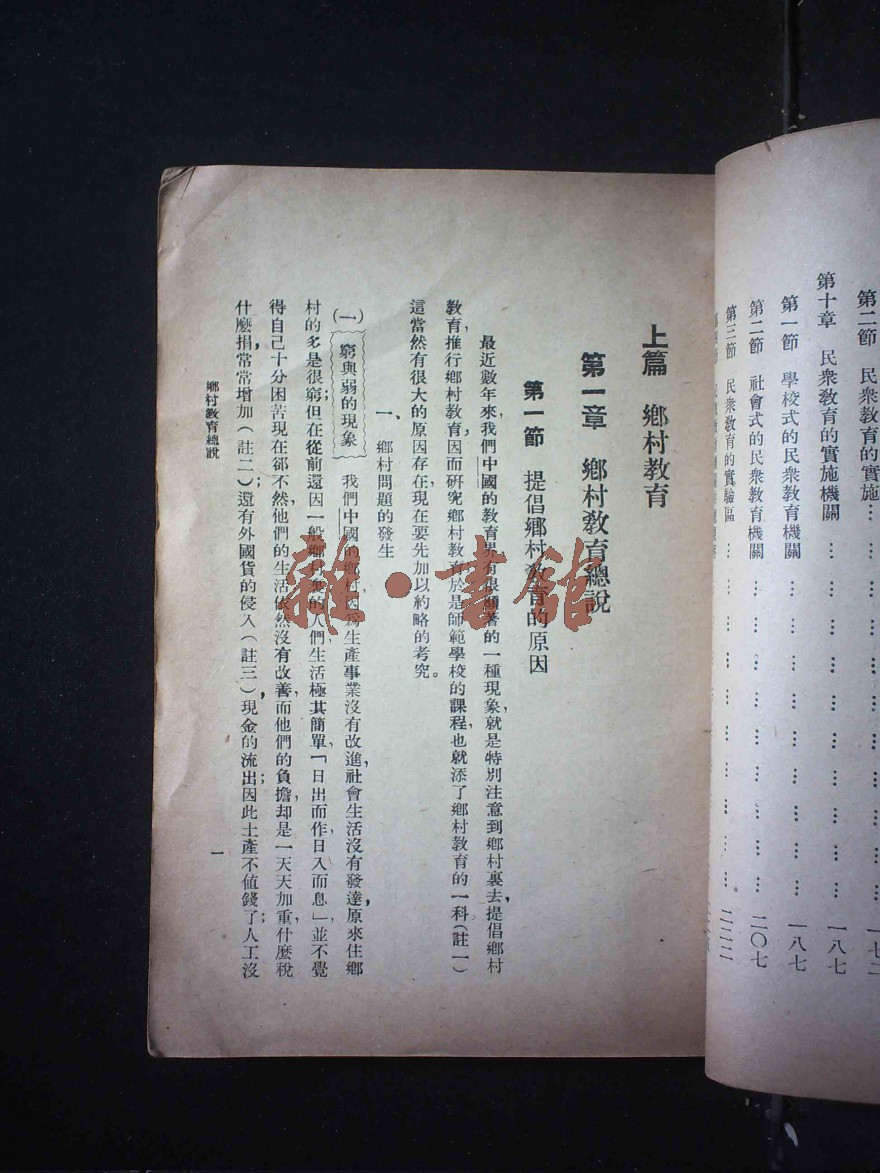 第二節　民衆教育的實施……一七二
第十章　民衆教育的實施機關……一八七
第一節　學校式的民衆教育機關……一八七
第二節　社會式的民衆教育機關……二〇七
第三節　民衆教育的實驗區……二二二
上篇　鄉村教育
第一章　鄉村教育總說
第一節　提倡鄉村教育的原因
最近數年來，我們中國的教育界有很顯著的一種現象，就是特別注意到鄉村裏去，提倡鄉村
教育，推行鄉村教育，因而研究鄉村教育於是師範學校的課程，也就添了鄉村教育的一科（註一）
這當然有很大的原因存在，現在要先加以約略的考究。
一、　鄉村問題的發生
（一）　窮與弱的現象　我們中國的鄉村，因爲生產事業沒有改進，社會生活沒有發達，原來住鄉
村的多是很窮；但在從前還因一般鄉村裏的人們生活極其簡單，「日出而作，日入而息」，並不覺
得自己十分困苦，現在卻不然，他們的生活依然沒有改善，而他們的負擔，却是一天天加重，什麼稅，
什麼捐，常常增加（註二）；還有外國貨的侵入（註三），現金的流出；因此土產不値錢了，人工沒
鄉村教育總說
一
雜·書館